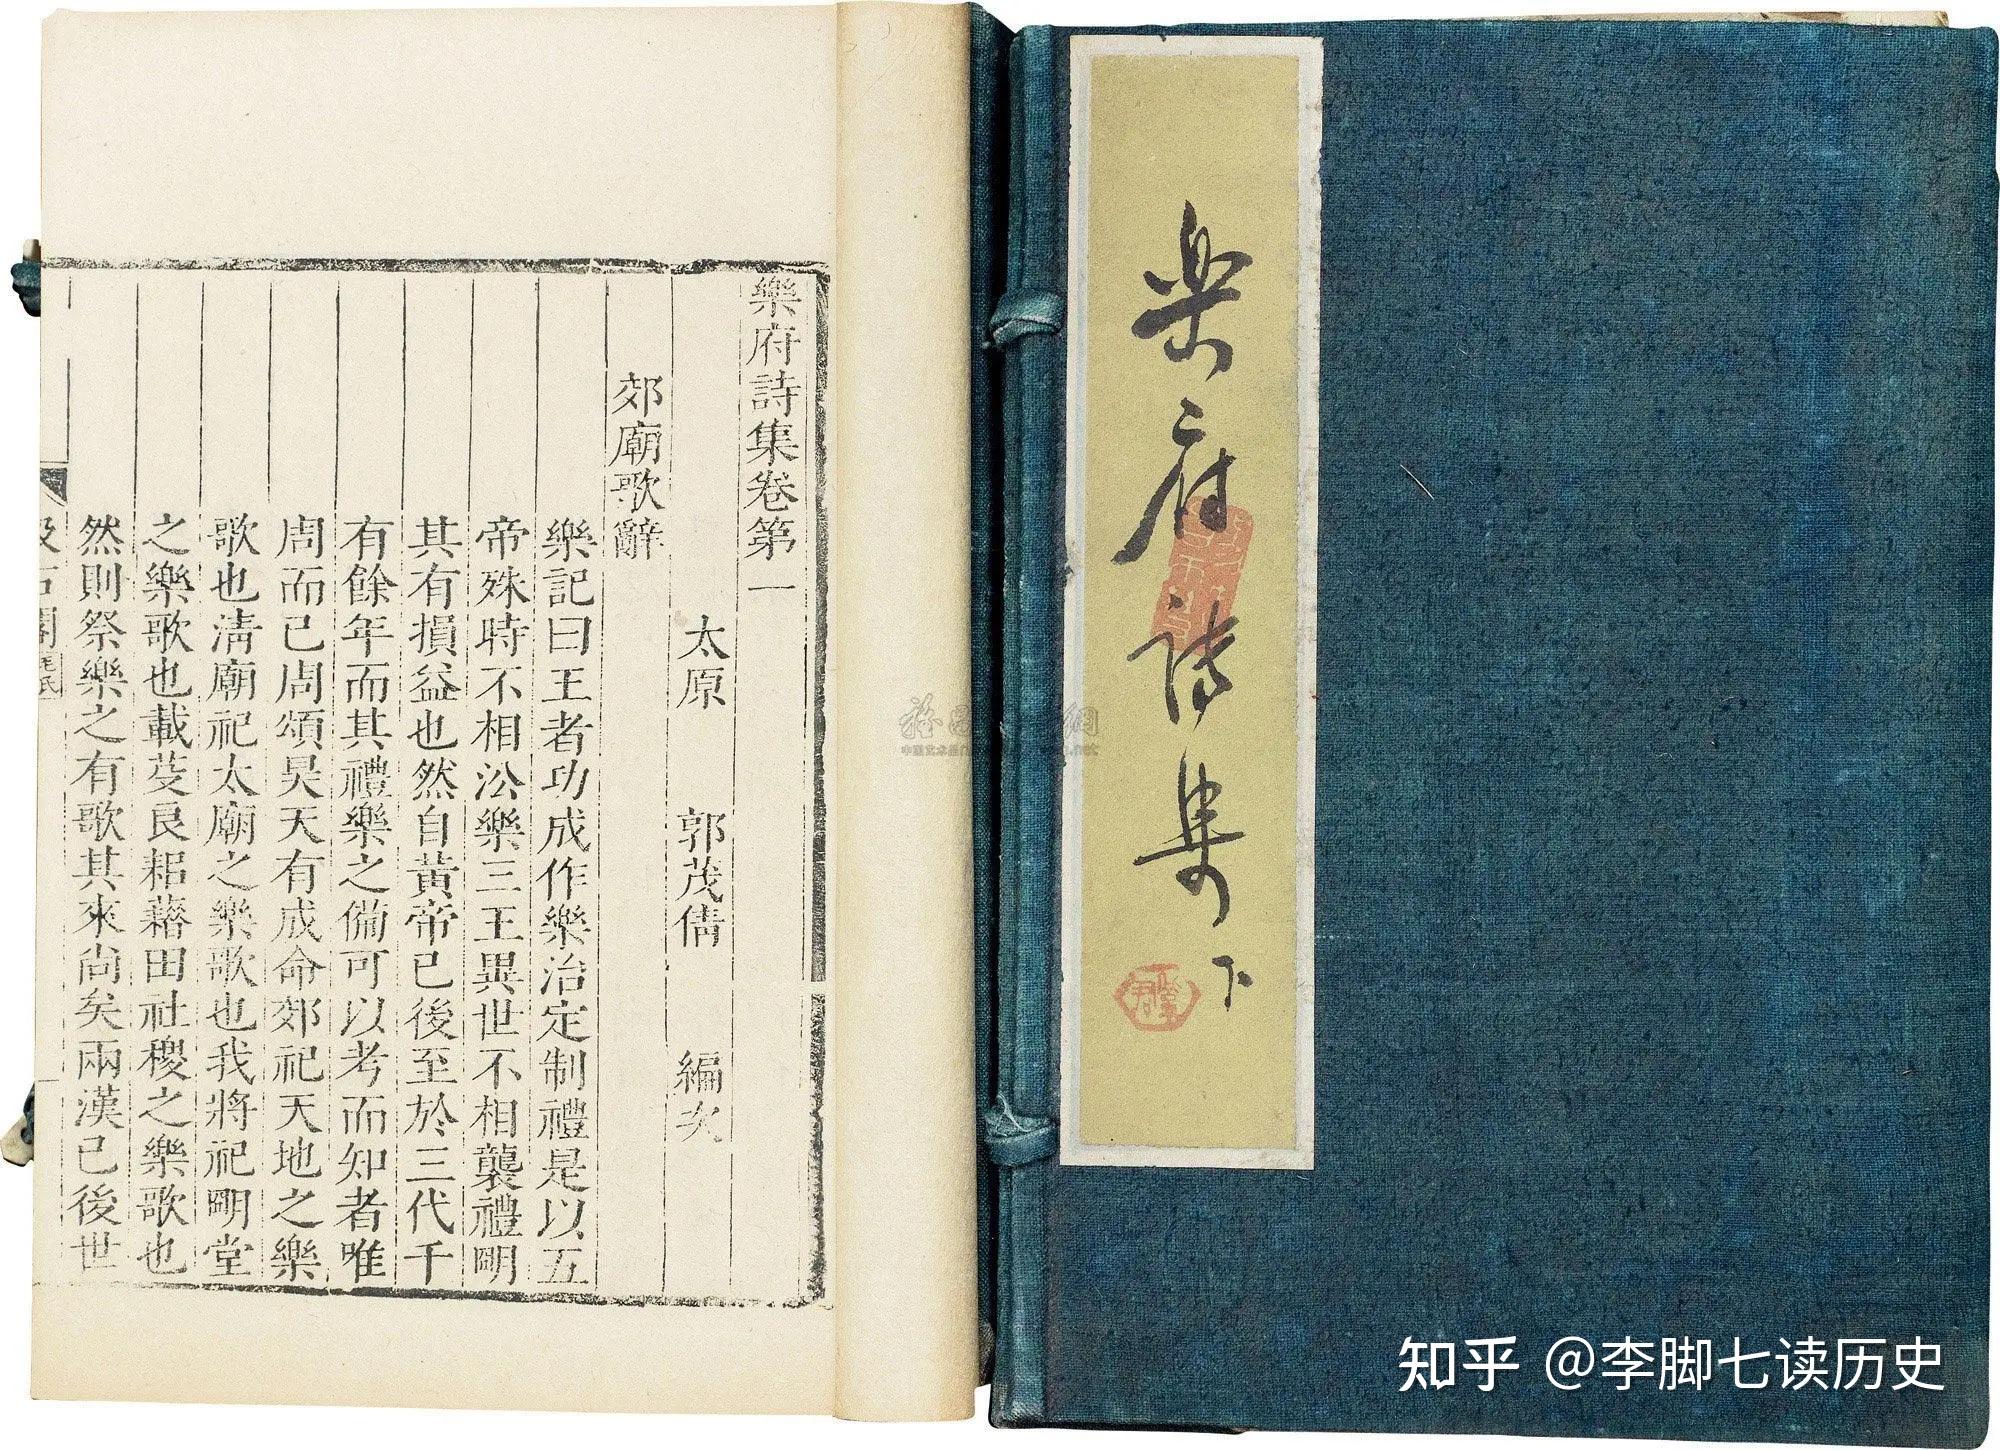 樂府詩集卷第一
太原 郭茂倩 編次
郊廟歌辭
樂記曰王者功成作樂治定制禮是以五
帝殊時不相沿樂三王異世不相襲禮明
其有損益也然自黃帝已後至於三代千
有餘年而其禮樂之備可以考而知者唯
周而已周頌昊天有成命郊祀天地之樂
歌也清廟祀太廟之樂歌也我將祀明堂
之樂歌也載芟良耜藉田社稷之樂歌也
然則祭樂之有歌其來尚矣兩漢已後世
汲古閣
毛氏
楽府詩集 下
知乎 @李脚七读历史